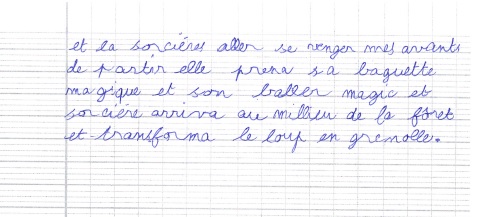 et la sorciéres aller se venger mes avants
de partir elle prena sa baguette
magique et son baller magic et
sorcière arriva au millieu de la fôret
et transforma le loup en grenolle.